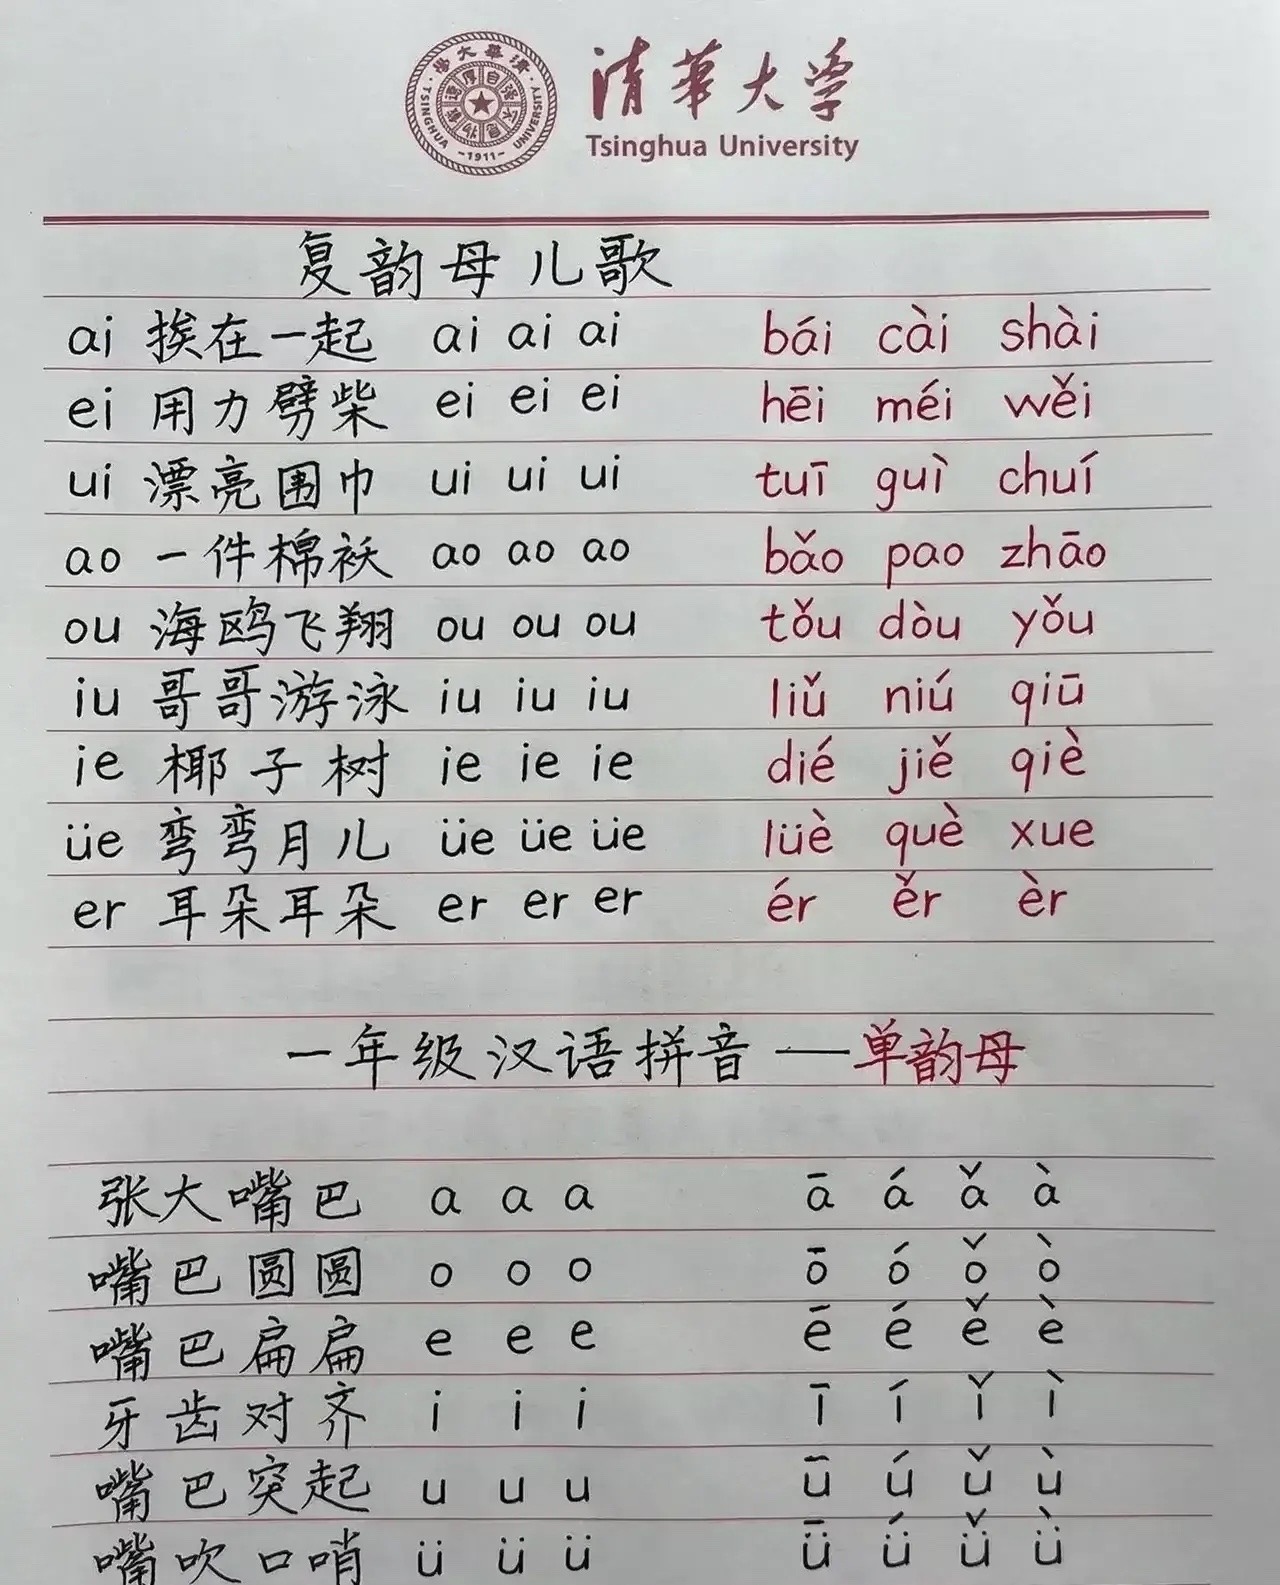 清華大學
Tsinghua University
清華大學
自强不息
厚德載物
TSINGHUA UNIVERSITY
-1911-
复韵母儿歌
ai 挨在一起 ai ai ai bái cài shài
ei 用力劈柴 ei ei ei hēi méi wěi
ui 漂亮围巾 ui ui ui tuī guì chuí
ao 一件棉袄 ao ao ao bǎo pao zhāo
ou 海鸥飞翔 ou ou ou tǒu dòu yǒu
iu 哥哥游泳 iu iu iu liǔ niú qiū
ie 椰子树 ie ie ie dié jiě qiè
üe 弯弯月儿 üe üe üe lüè què xue
er 耳朵耳朵 er er er ér ěr èr
一年级汉语拼音——单韵母
张大嘴巴 a a a ā á ǎ à
嘴巴圆圆 o o o ō ó ǒ ò
嘴巴扁扁 e e e ē é ě è
牙齿对齐 i i i ī í ǐ ì
嘴巴突起 u u u ū ú ǔ ù
嘴吹口哨 ü ü ü ǖ ǘ ǚ ǜ